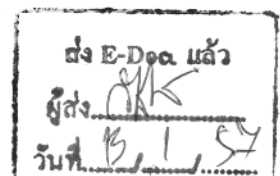 ส่ง E-Doc แล้ว
ผู้ส่ง
วันที่ 13 / 1 / 57